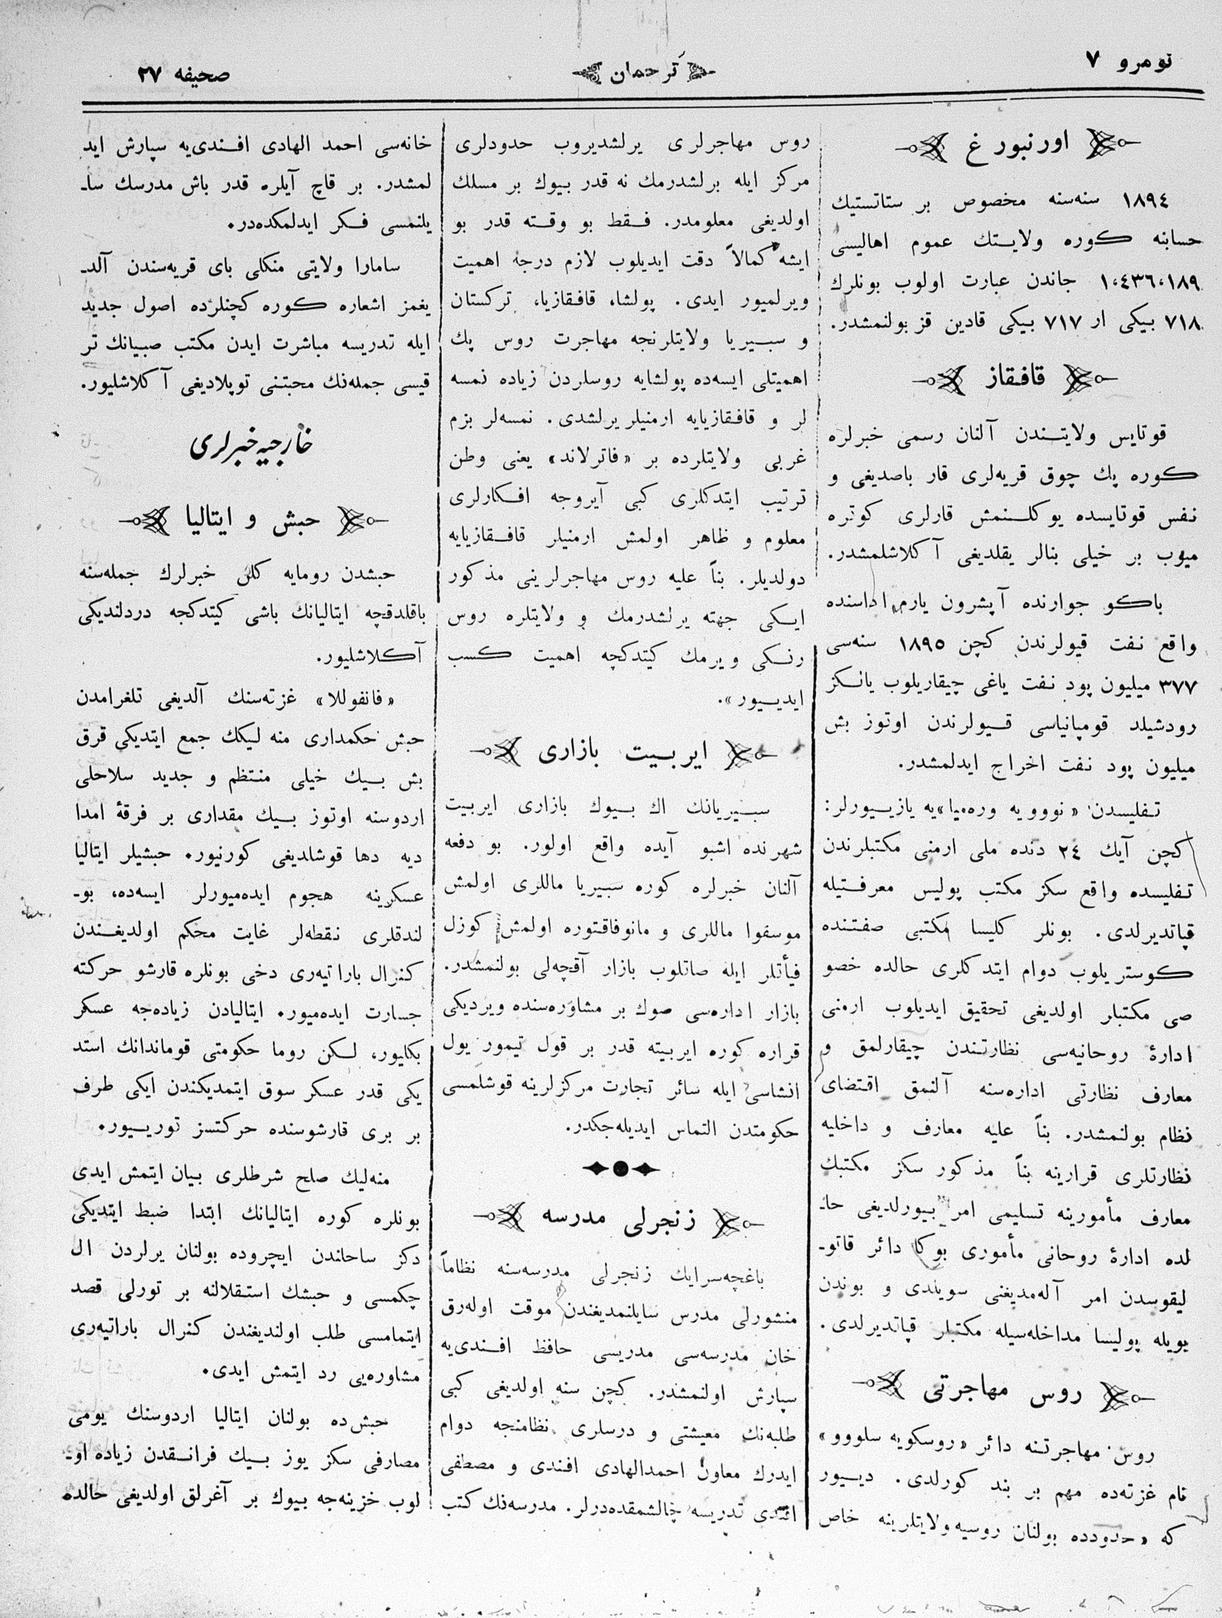 نومرو ٧
ترجمان
صحیفه ٢٧
اورنبورغ
١٨٩٤ سنه‌سنه مخصوص بر ستاتستیك
حسابنه كوره ولایتك عموم اهالیسی
١،٤٣٦،١٨٩ جاندن عبارت اولوب بونلرك
٧١٨ بیكی ار ٧١٧ بیكی قادین قز بولنمشدر.
قافقاز
قوتایس ولایتندن آلنان رسمی خبرلره
كوره پك چوق قریه‌لری قار باصدیغی و
نفس قوتایسده یوكلنمش قارلری كوتره
میوب بر خیلی بنالر یقلدیغی آكلاشلمشدر.
باكو جوارنده آپشرون یارم اداسنده
واقع نفت قیولرندن كچن ١٨٩٥ سنه‌سی
٣٧٧ میلیون پود نفت یاغی چیقاریلوب یانكز
رودشیلد قومپانیاسی قیولرندن اوتوز بش
میلیون پود نفت اخراج ایدلمشدر.
تفلیسدن «نووویه وره‌میا»یه یازیورلر:
كچن آیك ٢٤ دنده ملی ارمنی مكتبلرندن
تفلیسده واقع سكز مكتب پولیس معرفتیله
قپاتدیرلدی. بونلر كلیسا مكتبی صفتنده
كوستریلوب دوام ایتدكلری حالده خصو
صی مكتبلر اولدیغی تحقیق ایدیلوب ارمنی
ادارهٔ روحانیه‌سی نظارتندن چیقارلمق و
معارف نظارتی اداره‌سنه آلنمق اقتضای
نظام بولنمشدر. بناً علیه معارف و داخلیه
نظارتلری قرارینه بناً مذكور سكز مكتبك
معارف مأمورینه تسلیمی امر بیورلدیغی حا-
لده ادارهٔ روحانی مأموری بوكا دائر قاتو-
لیقوسدن امر آله‌مدیغنی سویلدی و بوندن
بویله پولیسا مداخله‌سیله مكتبلر قپاتدیرلدی.
روس مهاجرتی
روس مهاجرتنه دائر «روسكویه سلووو»
نام غزته‌ده مهم بر بند كورلدی. دیور
كه «حدودده بولنان روسیه ولایتلرینه خاص
روس مهاجرلری یرلشدیروب حدودلری
مركز ایله برلشدرمك نه قدر بیوك بر مسلك
اولدیغی معلومدر. فقط بو وقته قدر بو
ایشه كمالاً دقت ایدیلوب لازم درجه اهمیت
ویرلمیور ایدی. پولشا، قافقازیا، تركستان
و سبیریا ولایتلرنجه مهاجرت روس پك
اهمیتلی ایسه‌ده پولشایه روسلردن زیاده نمسه
لر و قافقازیایه ارمنیلر یرلشدی. نمسه‌لر بزم
غربی ولایتلرده بر «فاترلاند» یعنی وطن
ترتیب ایتدكلری كبی آیروجه افكارلری
معلوم و ظاهر اولمش ارمنیلر قافقازیایه
دولدیلر. بناً علیه روس مهاجرلرینی مذكور
ایكی جهته یرلشدرمك و ولایتلره روس
رنكی ویرمك كیتدكچه اهمیت كسب
ایدیور».
ایربیت بازاری
سبیریانك اك بیوك بازاری ایربیت
شهرنده اشبو آیده واقع اولور. بو دفعه
آلنان خبرلره كوره سبیریا ماللری اولمش
موسقوا ماللری و مانوفاقتوره اولمش كوزل
فیأتلر ایله صاتلوب بازار آقچه‌لی بولنمشدر.
بازار اداره‌سی صوك بر مشاوره‌سنده ویردیكی
قراره كوره ایربیته قدر بر قول تیمور یول
انشاسی ایله سائر تجارت مركزلرینه قوشلمسی
حكومتدن التماس ایدیله‌جكدر.
زنجرلی مدرسه
باغچه‌سرایك زنجرلی مدرسه‌سنه نظاماً
منشورلی مدرس سایلنمدیغندن موقت اوله‌رق
خان مدرسه‌سی مدریسی حافظ افندی‌یه
سپارش اولنمشدر. كچن سنه اولدیغی كبی
طلبه‌نك معیشتی و درسلری نظامنجه دوام
ایدرك معاون احمدالهادی افندی و مصطفی
افندی تدریسه چالشمقده‌درلر. مدرسه‌نك كتب
خانه‌سی احمد الهادی افندی‌یه سپارش اید
لمشدر. بر قاچ آیلره قدر باش مدرسك سا-
یلنمسی فكر ایدلمكده‌در.
سامارا ولایتی منكلی بای قریه‌سندن آلد-
یغمز اشعاره كوره كچنلرده اصول جدید
ایله تدریسه مباشرت ایدن مكتب صبیانك تر
قیسی جمله‌نك محبتنی توپلادیغی آكلاشلیور.
خارجیه خبرلری
حبش و ایتالیا
حبشدن رومایه كلن خبرلرك جمله‌سنه
باقلدقچه ایتالیانك باشی كیتدكجه دردلندیكی
آكلاشلیور.
«فانفوللا» غزته‌سنك آلدیغی تلغرامدن
حبش حكمداری منه لیكك جمع ایتدیكی قرق
بش بیك خیلی منتظم و جدید سلاحلی
اردوسنه اوتوز بیك مقداری بر فرقهٔ امدا
دیه دها قوشلدیغی كورنیور. حبشیلر ایتالیا
عسكرینه هجوم ایده‌میورلر ایسه‌ده، بو-
لندقلری نقطه‌لر غایت محكم اولدیغندن
كنرال باراتیه‌ری دخی بونلره قارشو حركته
جسارت ایده‌میور. ایتالیادن زیاده‌جه عسكر
بكلیور، لكن روما حكومتی قوماندانك استد
یكی قدر عسكر سوق ایتمدیكندن ایكی طرف
بر بری قارشوسنده حركتسز توریور.
منه‌لیك صلح شرطلری بیان ایتمش ایدی
بونلره كوره ایتالیانك ابتدا ضبط ایتدیكی
دكز ساحلندن ایچروده بولنان یرلردن ال
چكمسی و حبشك استقلالنه بر تورلی قصد
ایتمامسی طلب اولندیغندن كنرال باراتیه‌ری
مشاوره‌یی رد ایتمش ایدی.
حبش‌ده بولنان ایتالیا اردوسنك یومی
مصارفی سكز یوز بیك فرانقدن زیاده او-
لوب خزینه‌جه بیوك بر آغرلق اولدیغی حالده